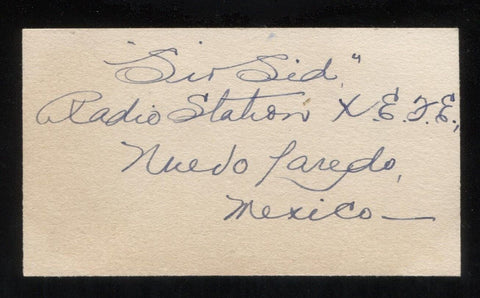 "Sir Sid,"
Radio Station X.E.F.E.,
Nuedo Laredo,
Mexico—